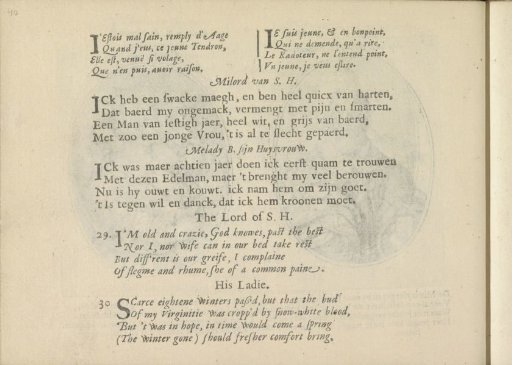 I'Estois mal sain, remply d'Aage
Quand j'eus, ce jeune Tendron,
Elle est, venuë si volage,
Que n'en puis, avoir raison.
IE suis jeune, & en bonpoint,
Qui ne demende, qu'a rire,
Le Radoteur, ne l'entend point,
Vn jeune, je veus eslire.
Milord van S. H.
ICk heb een swacke maegh, en ben heel quicx van harten,
Dat baerd my ongemack, vermengt met pijn en smarten.
Een Man van sestigh jaer, heel wit, en grijs van baerd,
Met zoo een jonge Vrou, 't is al te slecht gepaerd,
Melady B. sijn Huysvrouw.
ICk was maer achtien jaer doen ick eerst quam te trouwen
Met dezen Edelman, maer 't brenght my veel berouwen.
Nu is hy ouwt en kouwt. ick nam hem om zijn goet.
't Is tegen wil en danck, dat ick hem kroonen moet.
The Lord of S. H.
29. I'M old and crazie, God knowes, past the best
Nor I, nor wife can in our bed take rest
But diff'rent is our greife, I complaine
Of flegme and rhume, she of a common paine.
His Ladie.
30 SCarce eightene winters pass'd, but that the bud
Of my Virginitie was cropp'd by snow-white blood,
But 't was in hope, in time would come a spring
(The winter gone) should fresher comfort bring,